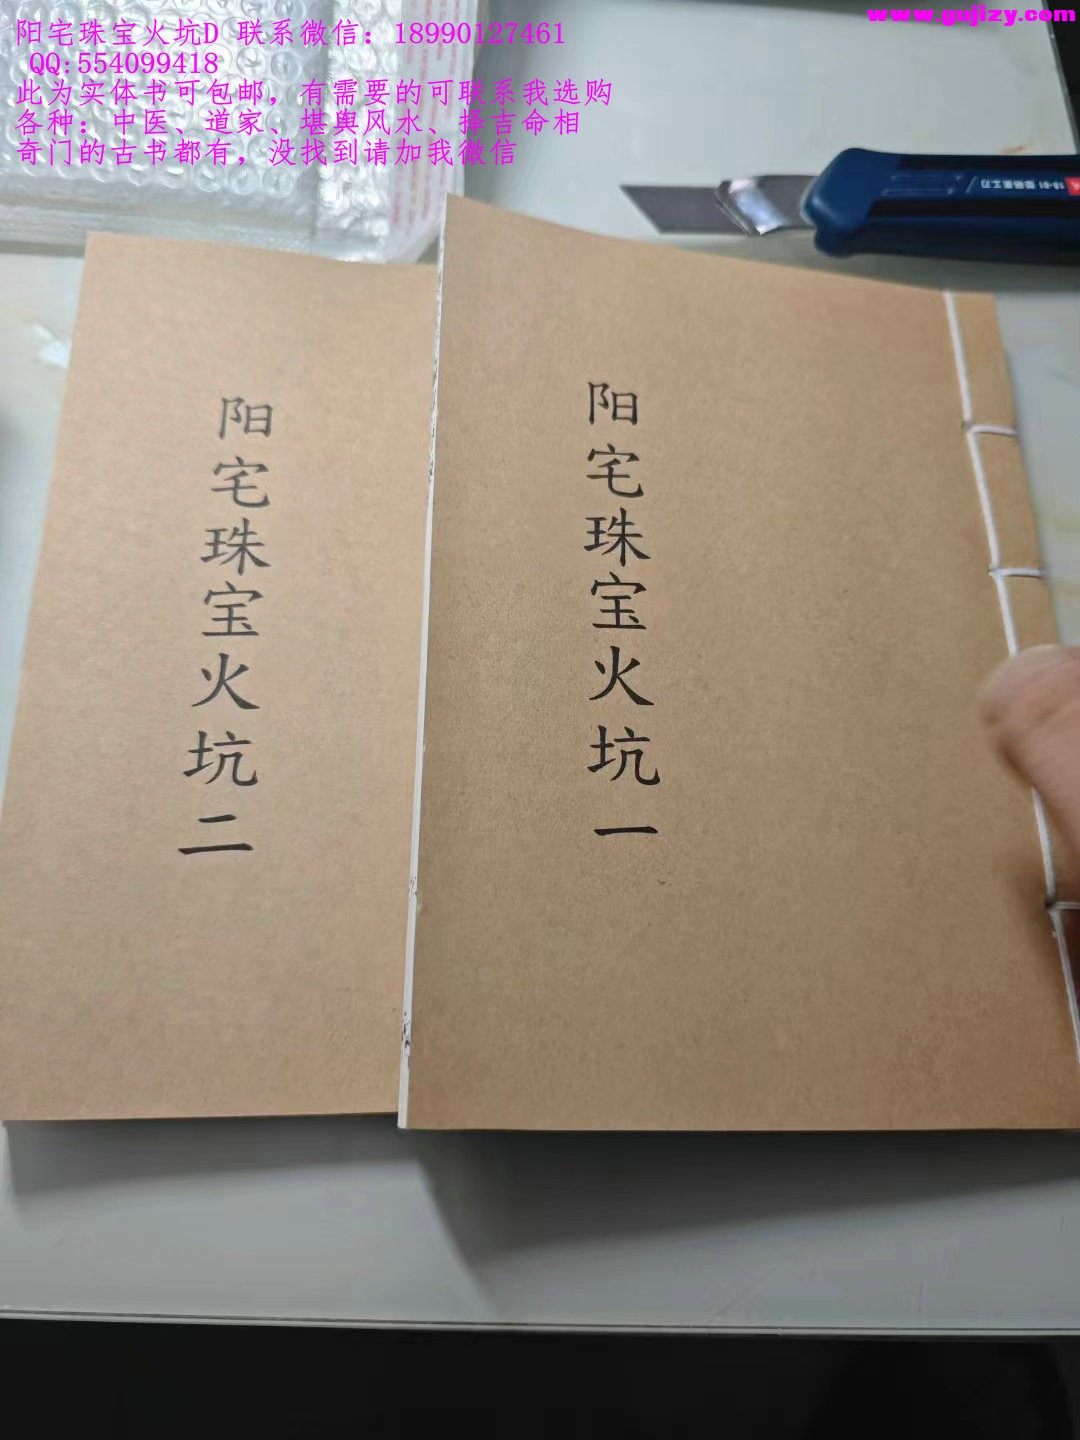 阳宅珠宝火坑D 联系微信：18990127461
QQ:554099418
此为实体书可包邮，有需要的可联系我选购
各种：中医、道家、堪舆风水、择吉命相
奇门的古书都有，没找到请加我微信
www.gujizy.com
阳宅珠宝火坑一
阳宅珠宝火坑二